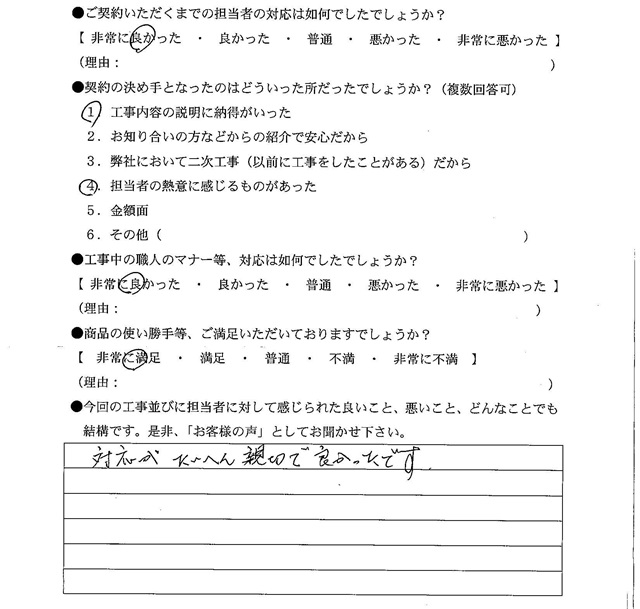 ●ご契約いただくまでの担当者の対応は如何でしたでしょうか？
【 非常に良かった ・ 良かった ・ 普通 ・ 悪かった ・ 非常に悪かった 】
（理由：　　　　　）
●契約の決め手となったのはどういった所だったでしょうか？（複数回答可）
1 工事内容の説明に納得がいった
2．お知り合いの方などからの紹介で安心だから
3．弊社において二次工事（以前に工事をしたことがある）だから
4．担当者の熱意に感じるものがあった
5．金額面
6．その他（　　　　　）
●工事中の職人のマナー等、対応は如何でしたでしょうか？
【 非常に良かった ・ 良かった ・ 普通 ・ 悪かった ・ 非常に悪かった 】
（理由：　　　　　）
●商品の使い勝手等、ご満足いただいておりますでしょうか？
【 非常に満足 ・ 満足 ・ 普通 ・ 不満 ・ 非常に不満 】
（理由：　　　　　）
●今回の工事並びに担当者に対して感じられた良いこと、悪いこと、どんなことでも
結構です。是非、「お客様の声」としてお聞かせ下さい。
対応が たいへん 親切で 良かったです